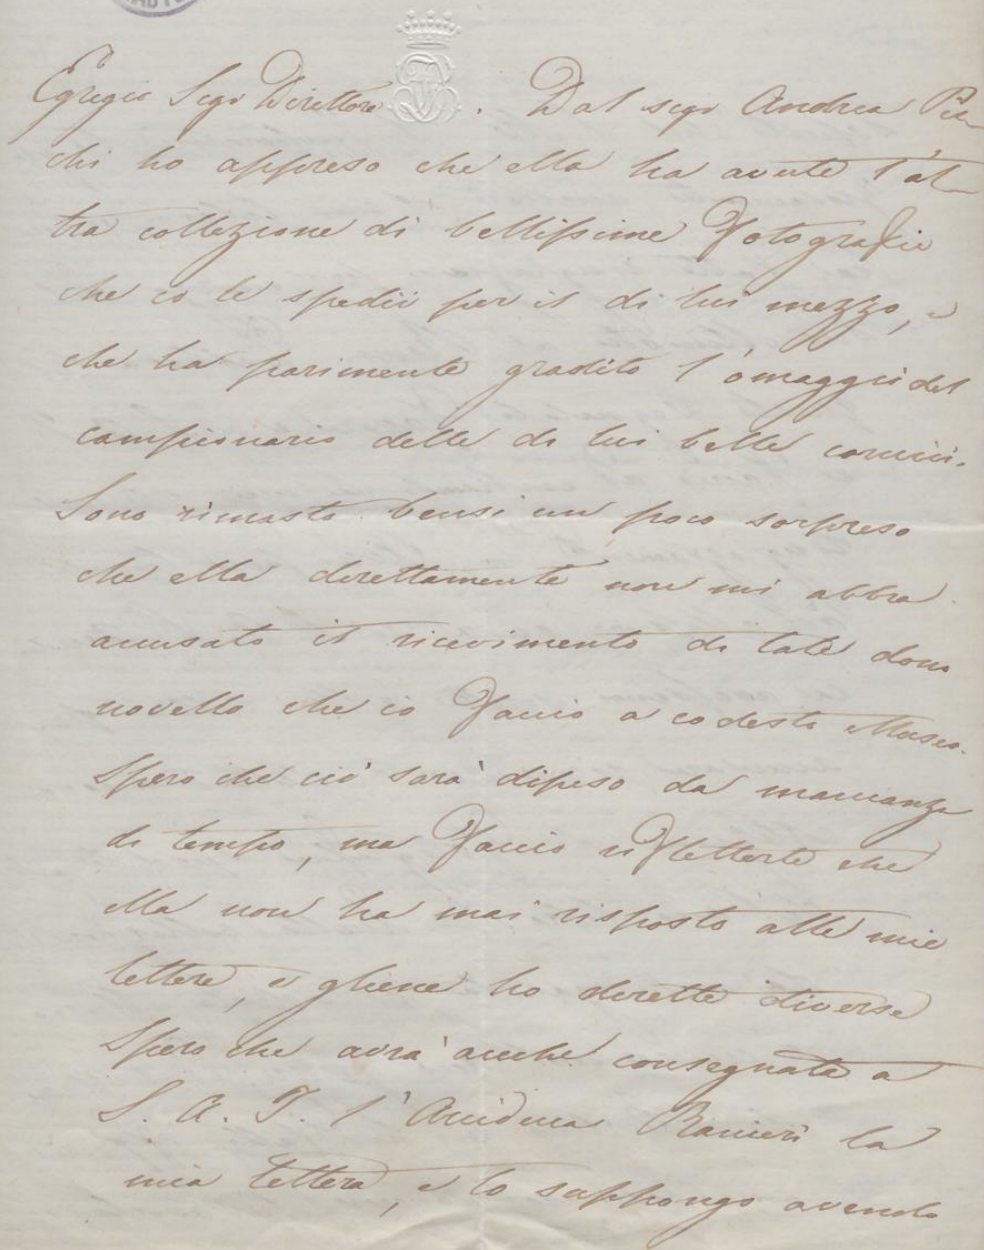 Egregio Sigr Direttore. Dal sigr Andrea Pic
chi ho appreso che ella ha avute l'al
tra collezione di bellissime Fotografie
che io le spedii per il di lui mezzo, e
che ha parimente gradito l'omaggio del
campionario delle di lui belle cornici.
Sono rimasto bensi un poco sorpreso
che ella direttamente non mi abbia
accusato il ricevimento di tale dono
novello che io faccio a codesto Museo.
Spero che ciò sarà dipeso da mancanza
di tempo, ma faccio riflettere che
ella non ha mai risposto alle mie
lettere, e gliene ho dirette diverse
Spero che avrà anche consegnata a
S. A. I. l'Arciduca Ranieri la
mia lettera, e lo suppongo avendo